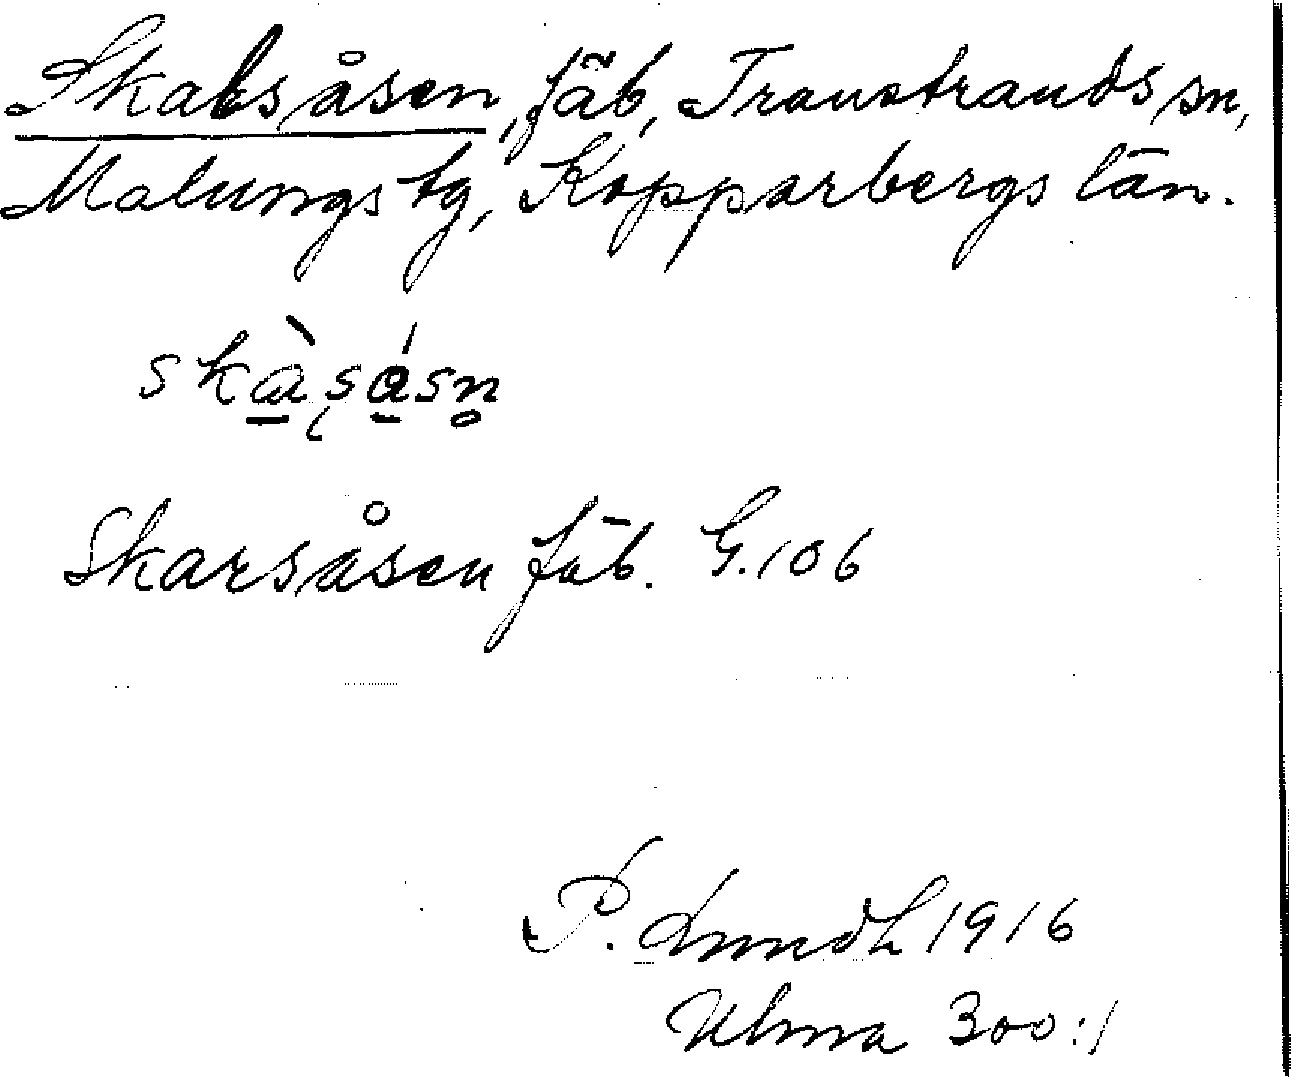 Skalsåsen, fäb, Transtrands sn,
Malungs tg, Kopparbergs län.
skàsásn̥
Skarsåsen fäb. G. 106
P. Lundh 1916
Ulma 300:1